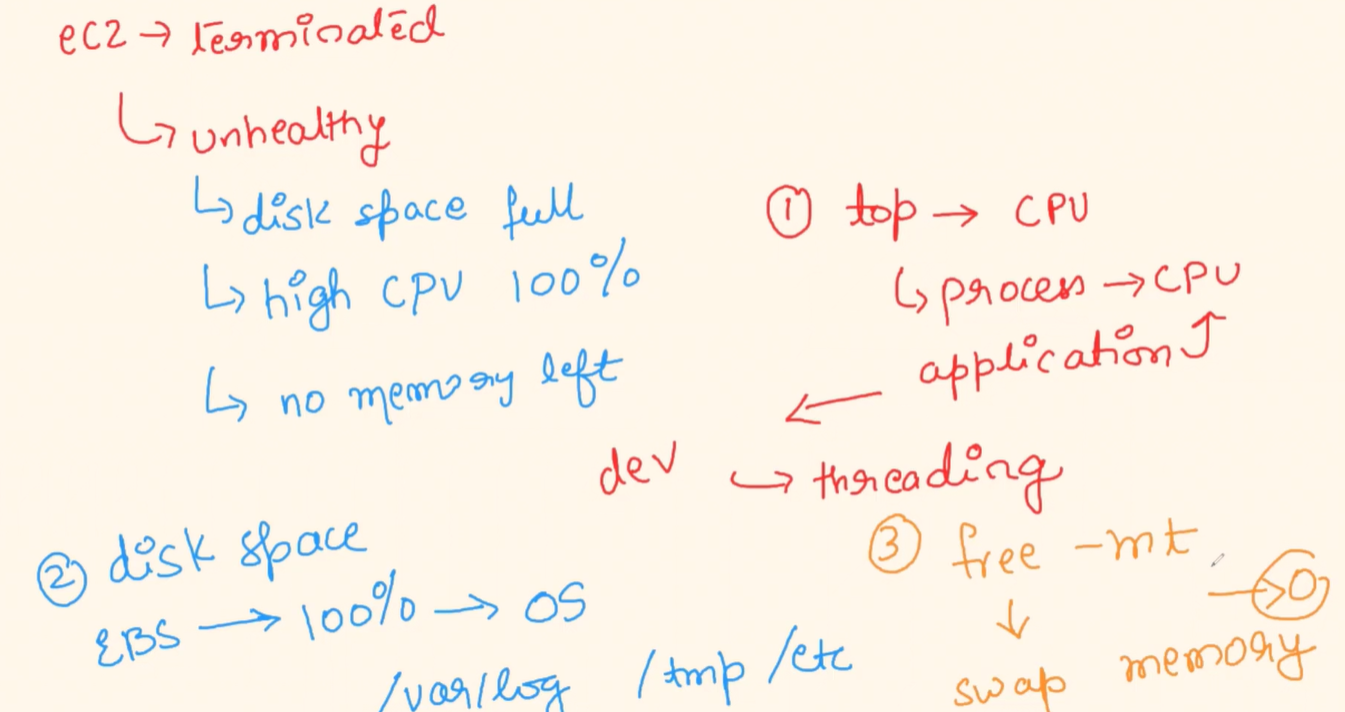 ec2 → terminated
↳ unhealthy
↳ disk space full
↳ high CPU 100%
↳ no memory left
① top → CPU
↳ process → CPU
application ↑
←
dev ↳ threading
② disk space
EBS → 100% → OS
/var/log /tmp /etc
③ free -mt
↓ → 0
swap memory